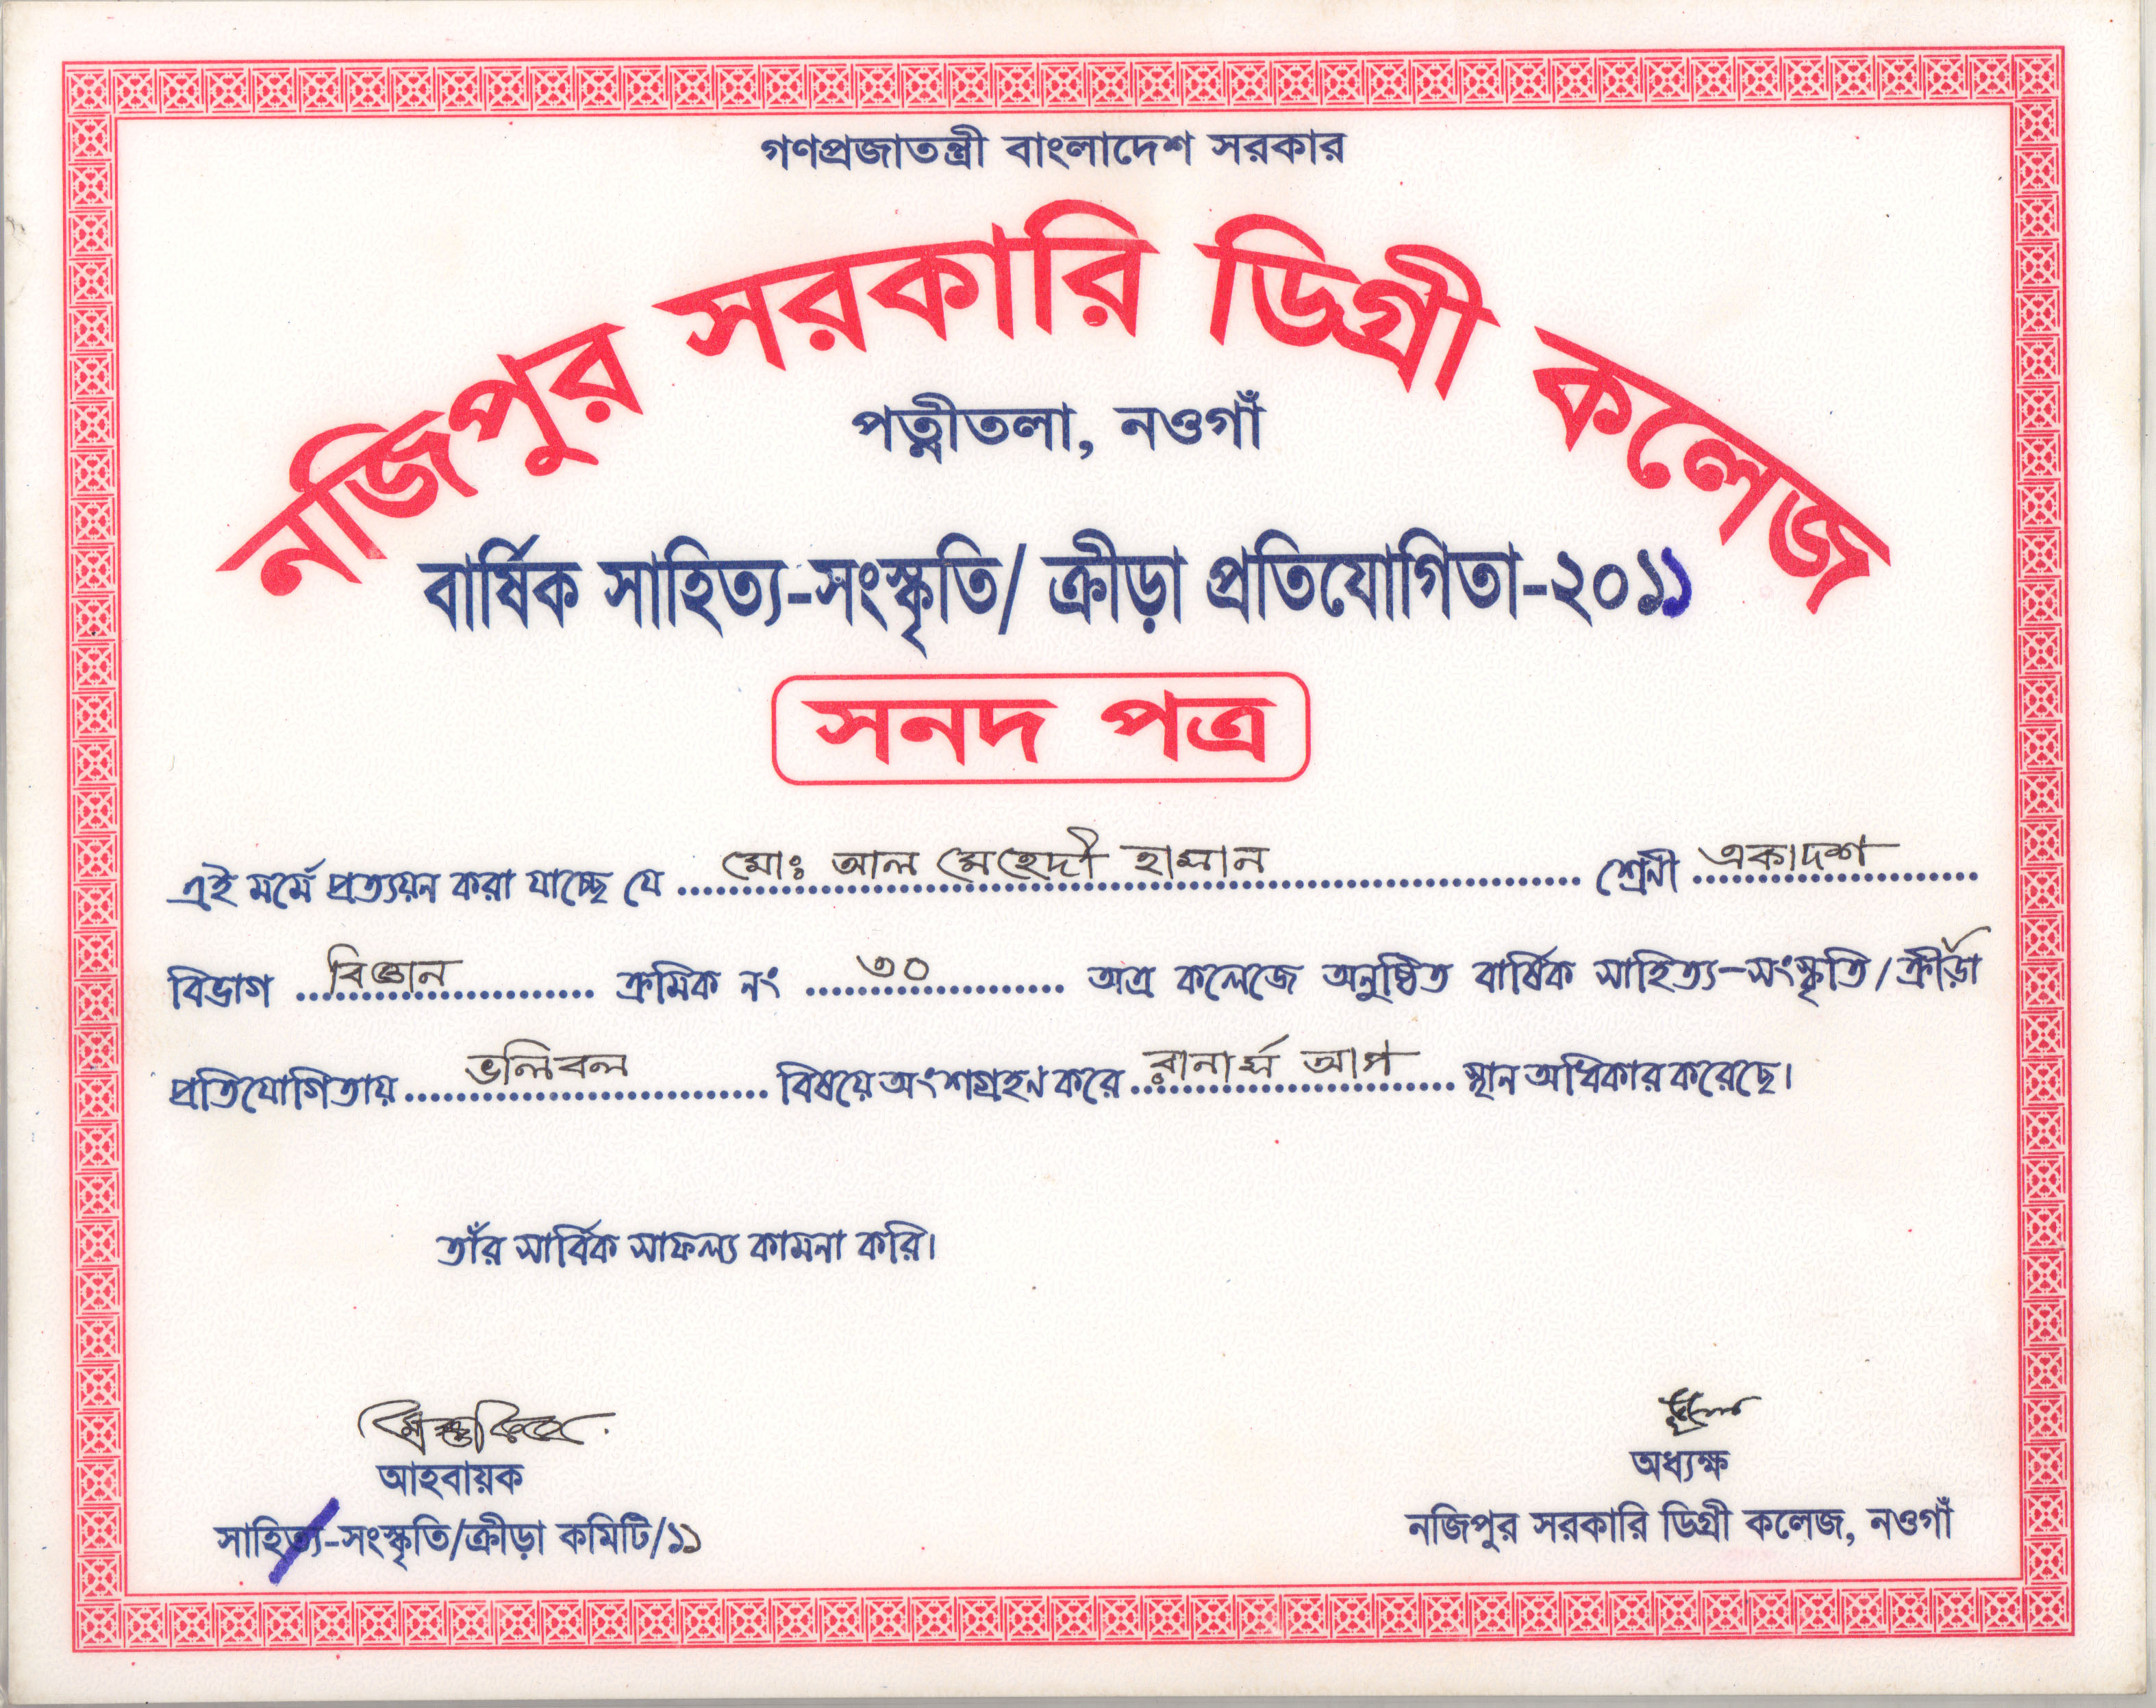 গণপ্রজাতন্ত্রী বাংলাদেশ সরকার
নজিপুর সরকারি ডিগ্রী কলেজ
পত্নীতলা, নওগাঁ
বার্ষিক সাহিত্য-সংস্কৃতি/ ক্রীড়া প্রতিযোগিতা-২০১১
সনদ পত্র
এই মর্মে প্রত্যয়ন করা যাচ্ছে যে মোঃ আল মেহেদী হাসান শ্রেনী একাদশ
বিভাগ বিজ্ঞান ক্রমিক নং ৩০ অত্র কলেজে অনুষ্ঠিত বার্ষিক সাহিত্য-সংস্কৃতি/ক্রীড়া
প্রতিযোগিতায় ভলিবল বিষয়ে অংশগ্রহণ করে রানার্স আপ স্থান অধিকার করেছে।
তাঁর সার্বিক সাফল্য কামনা করি।
আহবায়ক
সাহিত্য-সংস্কৃতি/ক্রীড়া কমিটি/১১
অধ্যক্ষ
নজিপুর সরকারি ডিগ্রী কলেজ, নওগাঁ